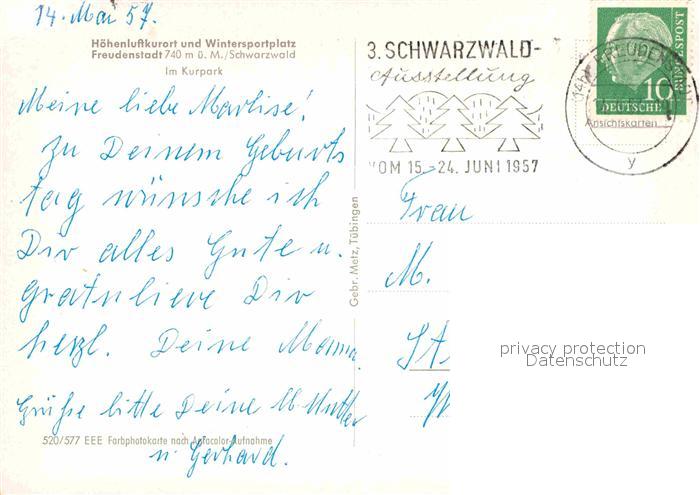 14. Mai 57.
Höhenluftkurort und Wintersportplatz
Freudenstadt 740 m ü. M./Schwarzwald
Im Kurpark
Meine liebe Marlise!
Zu Deinem Geburts
tag wünsche ich
Dir alles Gute u.
gratuliere Dir
herzl. Deine Mama.
Grüße bitte Deine
u. Gerhard.
520/577 EEE Farbphotokarte nach Agfacolor-Aufnahme
Gebr. Metz, Tübingen
3. SCHWARZWALD-
Ausstellung
VOM 15.-24. JUNI 1957
10
DEUTSCHE
BUNDESPOST
Ansichtskarten
y
Frau
M.
privacy protection
Datenschutz